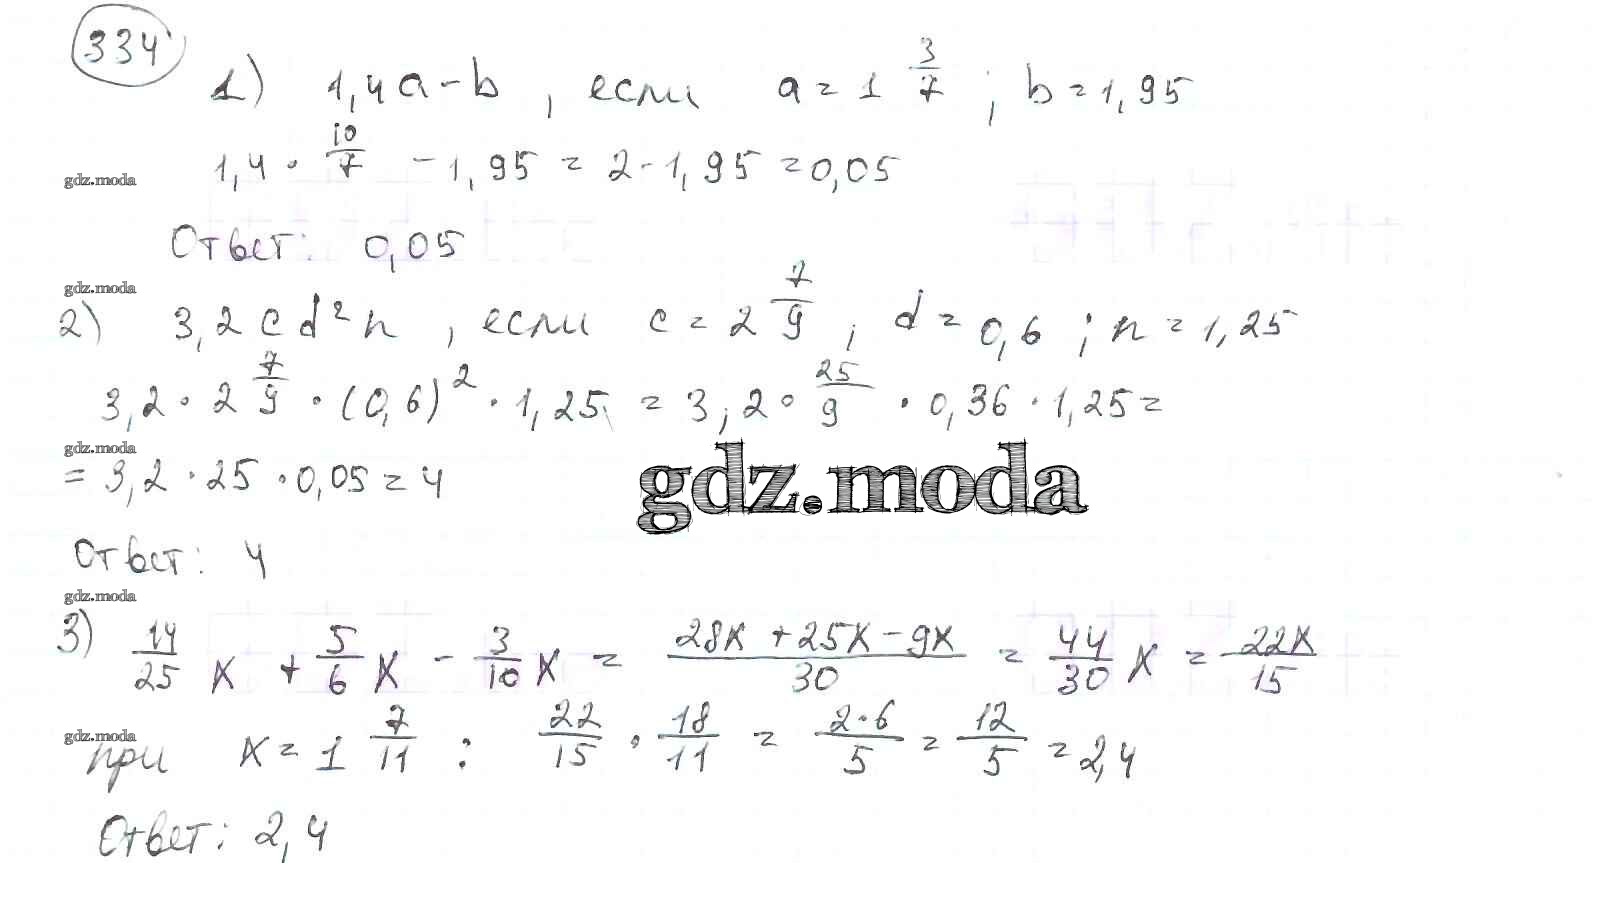 334
1) 1,4a - b, если a = 1 3/7; b = 1,95
1,4 · 10/7 - 1,95 = 2 - 1,95 = 0,05
gdz.moda
Ответ: 0,05
gdz.moda
2) 3,2cd²n, если c = 2 7/9, d = 0,6; n = 1,25
3,2 · 2 7/9 · (0,6)² · 1,25 = 3,2 · 25/9 · 0,36 · 1,25 =
gdz.moda
= 3,2 · 25 · 0,05 = 4
gdz.moda
Ответ: 4
gdz.moda
3) 14/25 x + 5/6 x - 3/10 x = 28x + 25x - 9x/30 = 44/30 x = 22x/15
gdz.moda
при x = 1 7/11 : 22/15 · 18/11 = 2·6/5 = 12/5 = 2,4
Ответ: 2,4